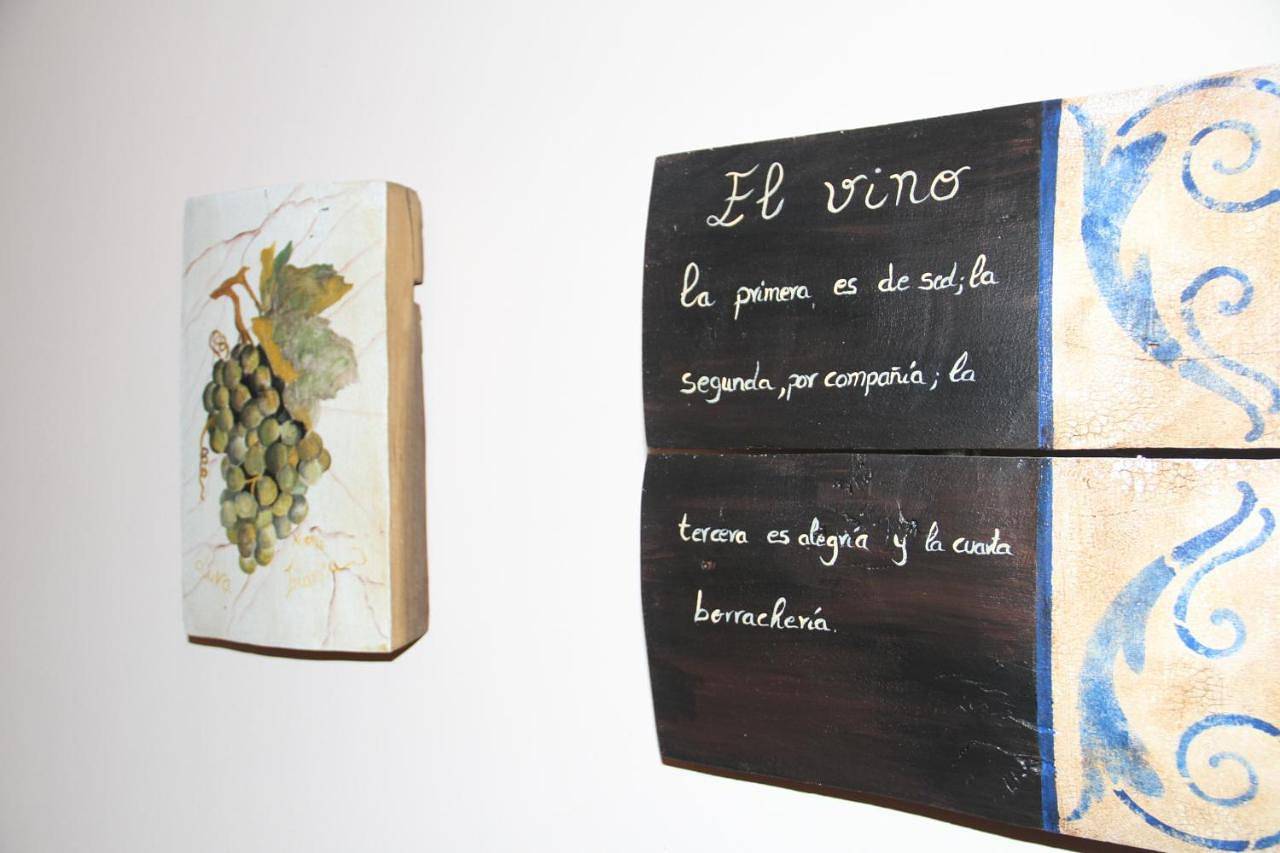 El vino
la primera es de sed; la
segunda, por compañía; la
tercera es alegría y la cuarta
borrachería.